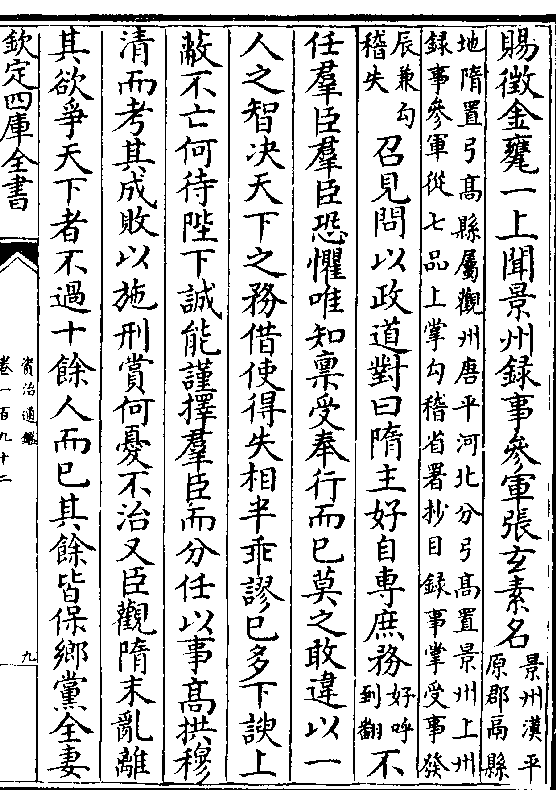 賜徵金甕一上聞景州録事參軍張玄素名
景州漢平
原郡鬲縣
地隋置弓髙縣屬觀州唐平河北分弓髙置景州上州
録事參軍從七品上掌勾稽省署抄目録事掌受事發
辰兼勾
稽失
召見問以政道對曰隋主好自專庶務
好呼
到翻
不
任羣臣羣臣恐懼唯知稟受奉行而已莫之敢違以一
人之智决天下之務借使得失相半乖謬已多下諛上
蔽不亡何待陛下誠能謹擇羣臣而分任以事髙拱穆
清而考其成敗以施刑賞何憂不治又臣觀隋末亂離
其欲爭天下者不過十餘人而已其餘皆保鄉黨全妻
欽定四庫全書
資治通鑑
卷一百九十二
九